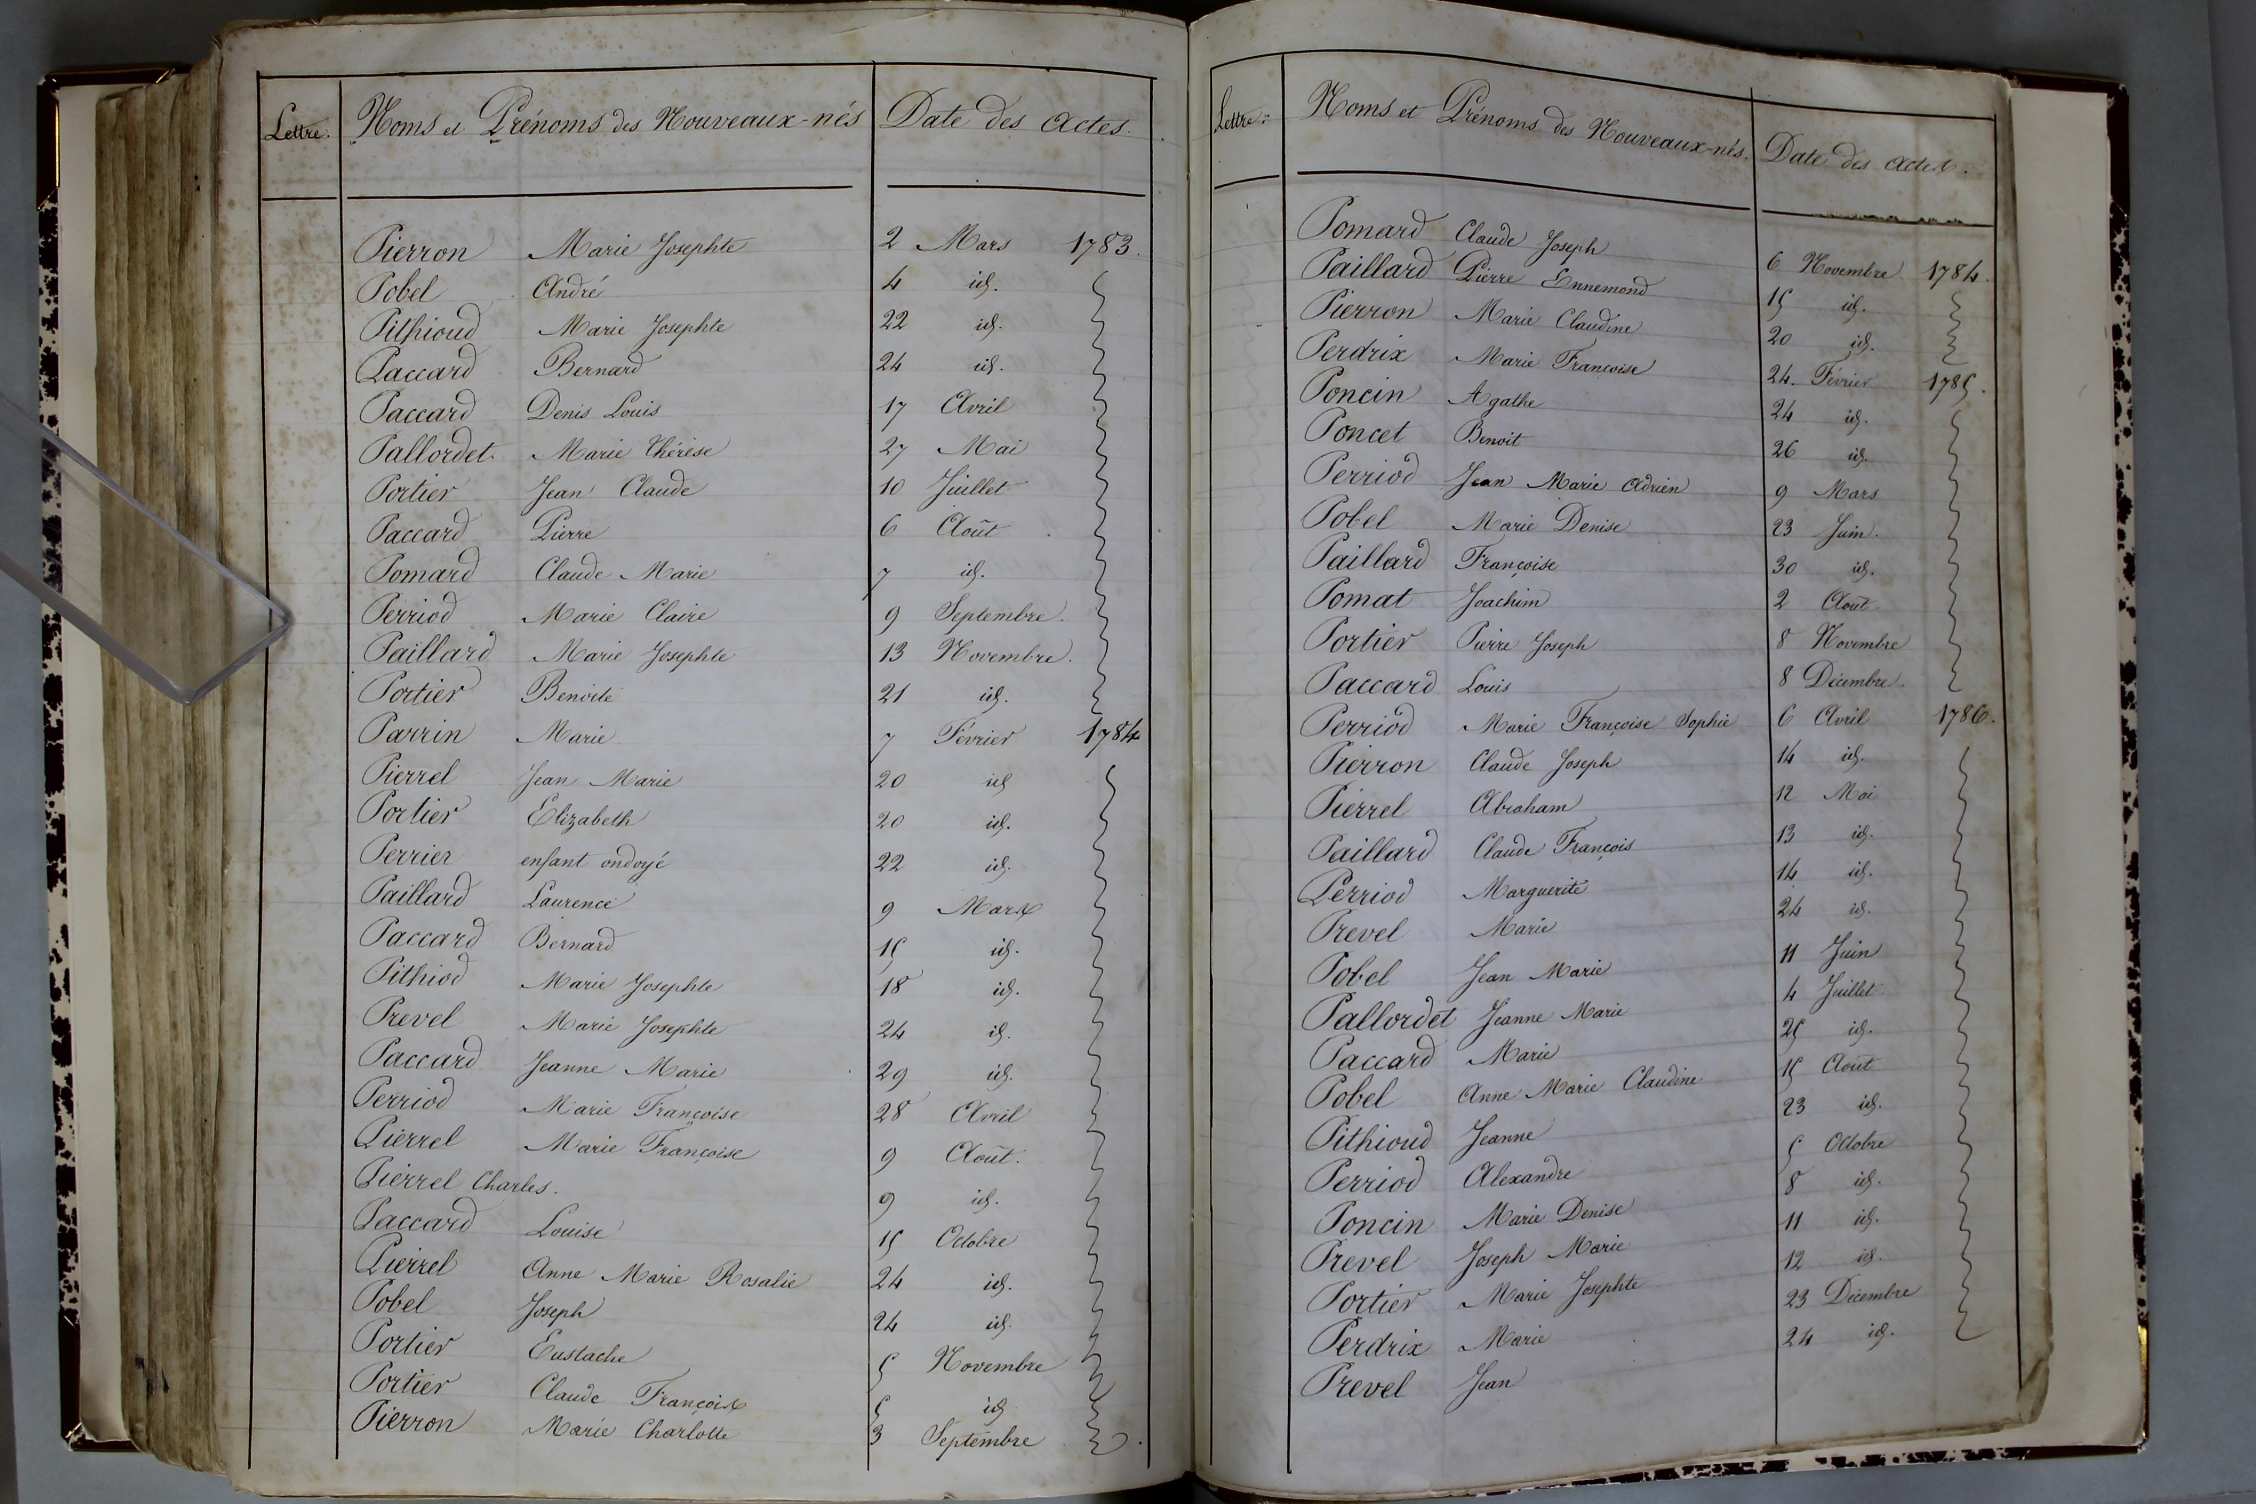 Lettre. Noms et Prénoms des Nouveaux-nés Date des Actes.
Pierron Marie Josephte 2 Mars 1783.
Pobel André 4 id.
Pithioud Marie Josephte 22 id.
Paccard Bernard 24 id.
Paccard Denis Louis 17 Avril
Pallordet Marie Thérèse 27 Mai
Portier Jean Claude 10 Juillet
Paccard Pierre 6 Août
Pomard Claude Marie 7 id.
Perriod Marie Claire 9 Septembre.
Paillard Marie Josephte 13 Novembre.
Portier Benoite 21 id.
Parrin Marie 7 Février 1784
Pierrel Jean Marie 20 id
Portier Elizabeth 20 id.
Perrier enfant ondoyé 22 id.
Paillard Laurence 9 Mars
Paccard Bernard 15 id.
Pithiod Marie Josephte 18 id.
Prevel Marie Josephte 24 id.
Paccard Jeanne Marie 29 id.
Perriod Marie Françoise 28 Avril
Pierrel Marie Françoise 9 Août.
Pierrel Charles. 9 id.
Paccard Louise 15 Octobre
Pierrel Anne Marie Rosalie 24 id.
Pobel Joseph 24 id.
Portier Eustache 5 Novembre
Portier Claude François 5 id
Pierron Marie Charlotte 3 Septembre
Lettre. Noms et Prénoms des Nouveaux-nés. Date des Actes.
Pomard Claude Joseph 6 Novembre 1784.
Paillard Pierre Ennemond 15 id.
Pierron Marie Claudine 20 id.
Perdrix Marie Françoise 24. Février 1785.
Poncin Agathe 24 id.
Poncet Benoit 26 id.
Perriod Jean Marie Adrien 9 Mars
Pobel Marie Denise 23 Juin.
Paillard Françoise 30 id.
Pomat Joachim 2 Août
Portier Pierre Joseph 8 Novembre
Paccard Louis 8 Décembre.
Perriod Marie Françoise Sophie 6 Avril 1786.
Pierron Claude Joseph 14 id.
Pierrel Abraham 12 Mai
Paillard Claude François 13 id.
Perriod Marguerite 14 id.
Prevel Marie 24 id.
Pobel Jean Marie 11 Juin
Pallordet Jeanne Marie 4 Juillet
Paccard Marie 25 id.
Pobel Anne Marie Claudine 15 Août
Pithioud Jeanne 23 id.
Perriod Alexandre 5 Octobre
Poncin Marie Denise 8 id.
Prevel Joseph Marie 11 id.
Portier Marie Josephte 12 id.
Perdrix Marie 23 Décembre
Prevel Jean 24 id.